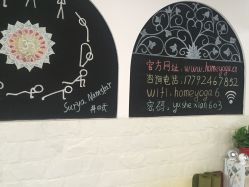 Surya Namskar
官方网址：www.homeyoga.cn
咨询电话：17792467852
wifi：homeyoga 6
密码：yushexian603